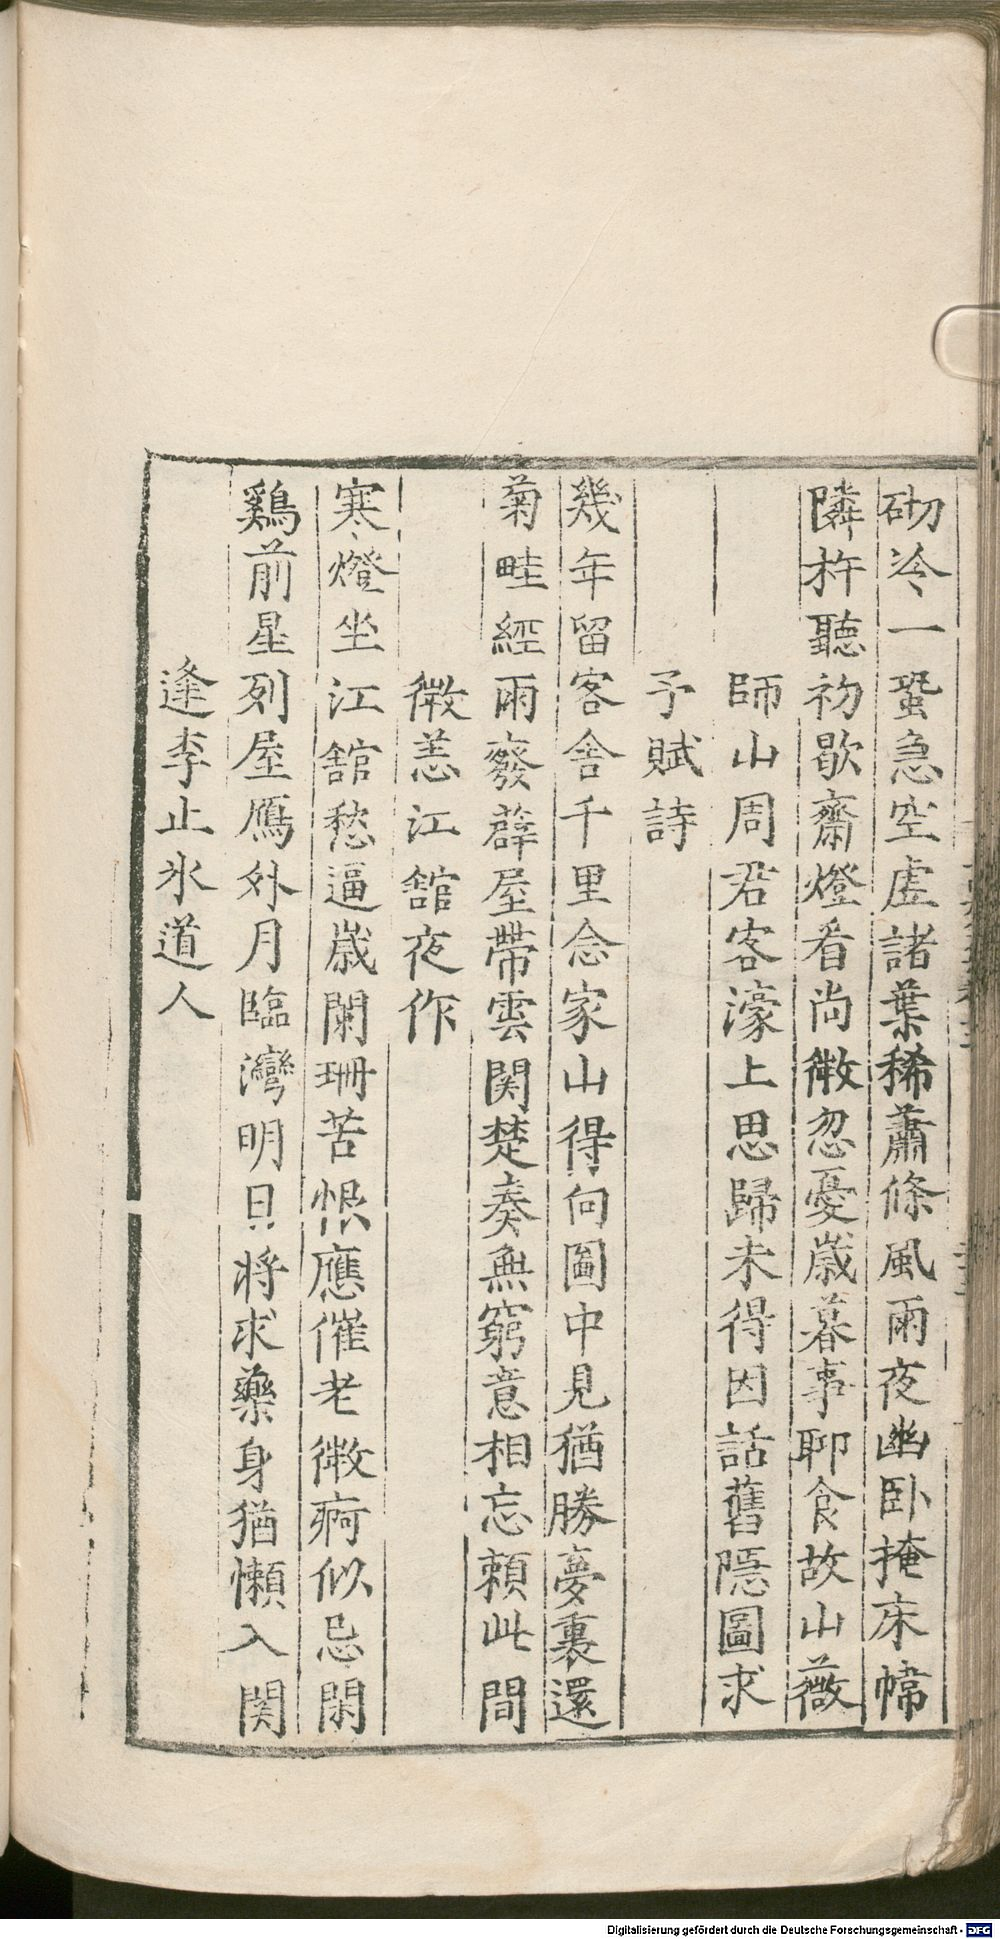 砌冷一蛩急空虛諸葉稀蕭條風雨夜幽臥掩床幃
隣杵聽初歇齋燈看尚微忽憂歳暮事聊食故山薇
師山周君客濠上思歸未得因話舊隱圖求
予賦詩
幾年留客舍千里念家山得向圖中見猶勝夢裏還
菊畦經雨癈薜屋帶雲関楚奏無窮意相忘頼此間
微恙江舘夜作
寒燈坐江舘愁逼歳闌珊苦恨應催老微痾似忌閑
鷄前星列屋鴈外月臨灣明旦將求藥身猶懶入関
逢李止水道人
Digitalisierung gefördert durch die Deutsche Forschungsgemeinschaft - DFG